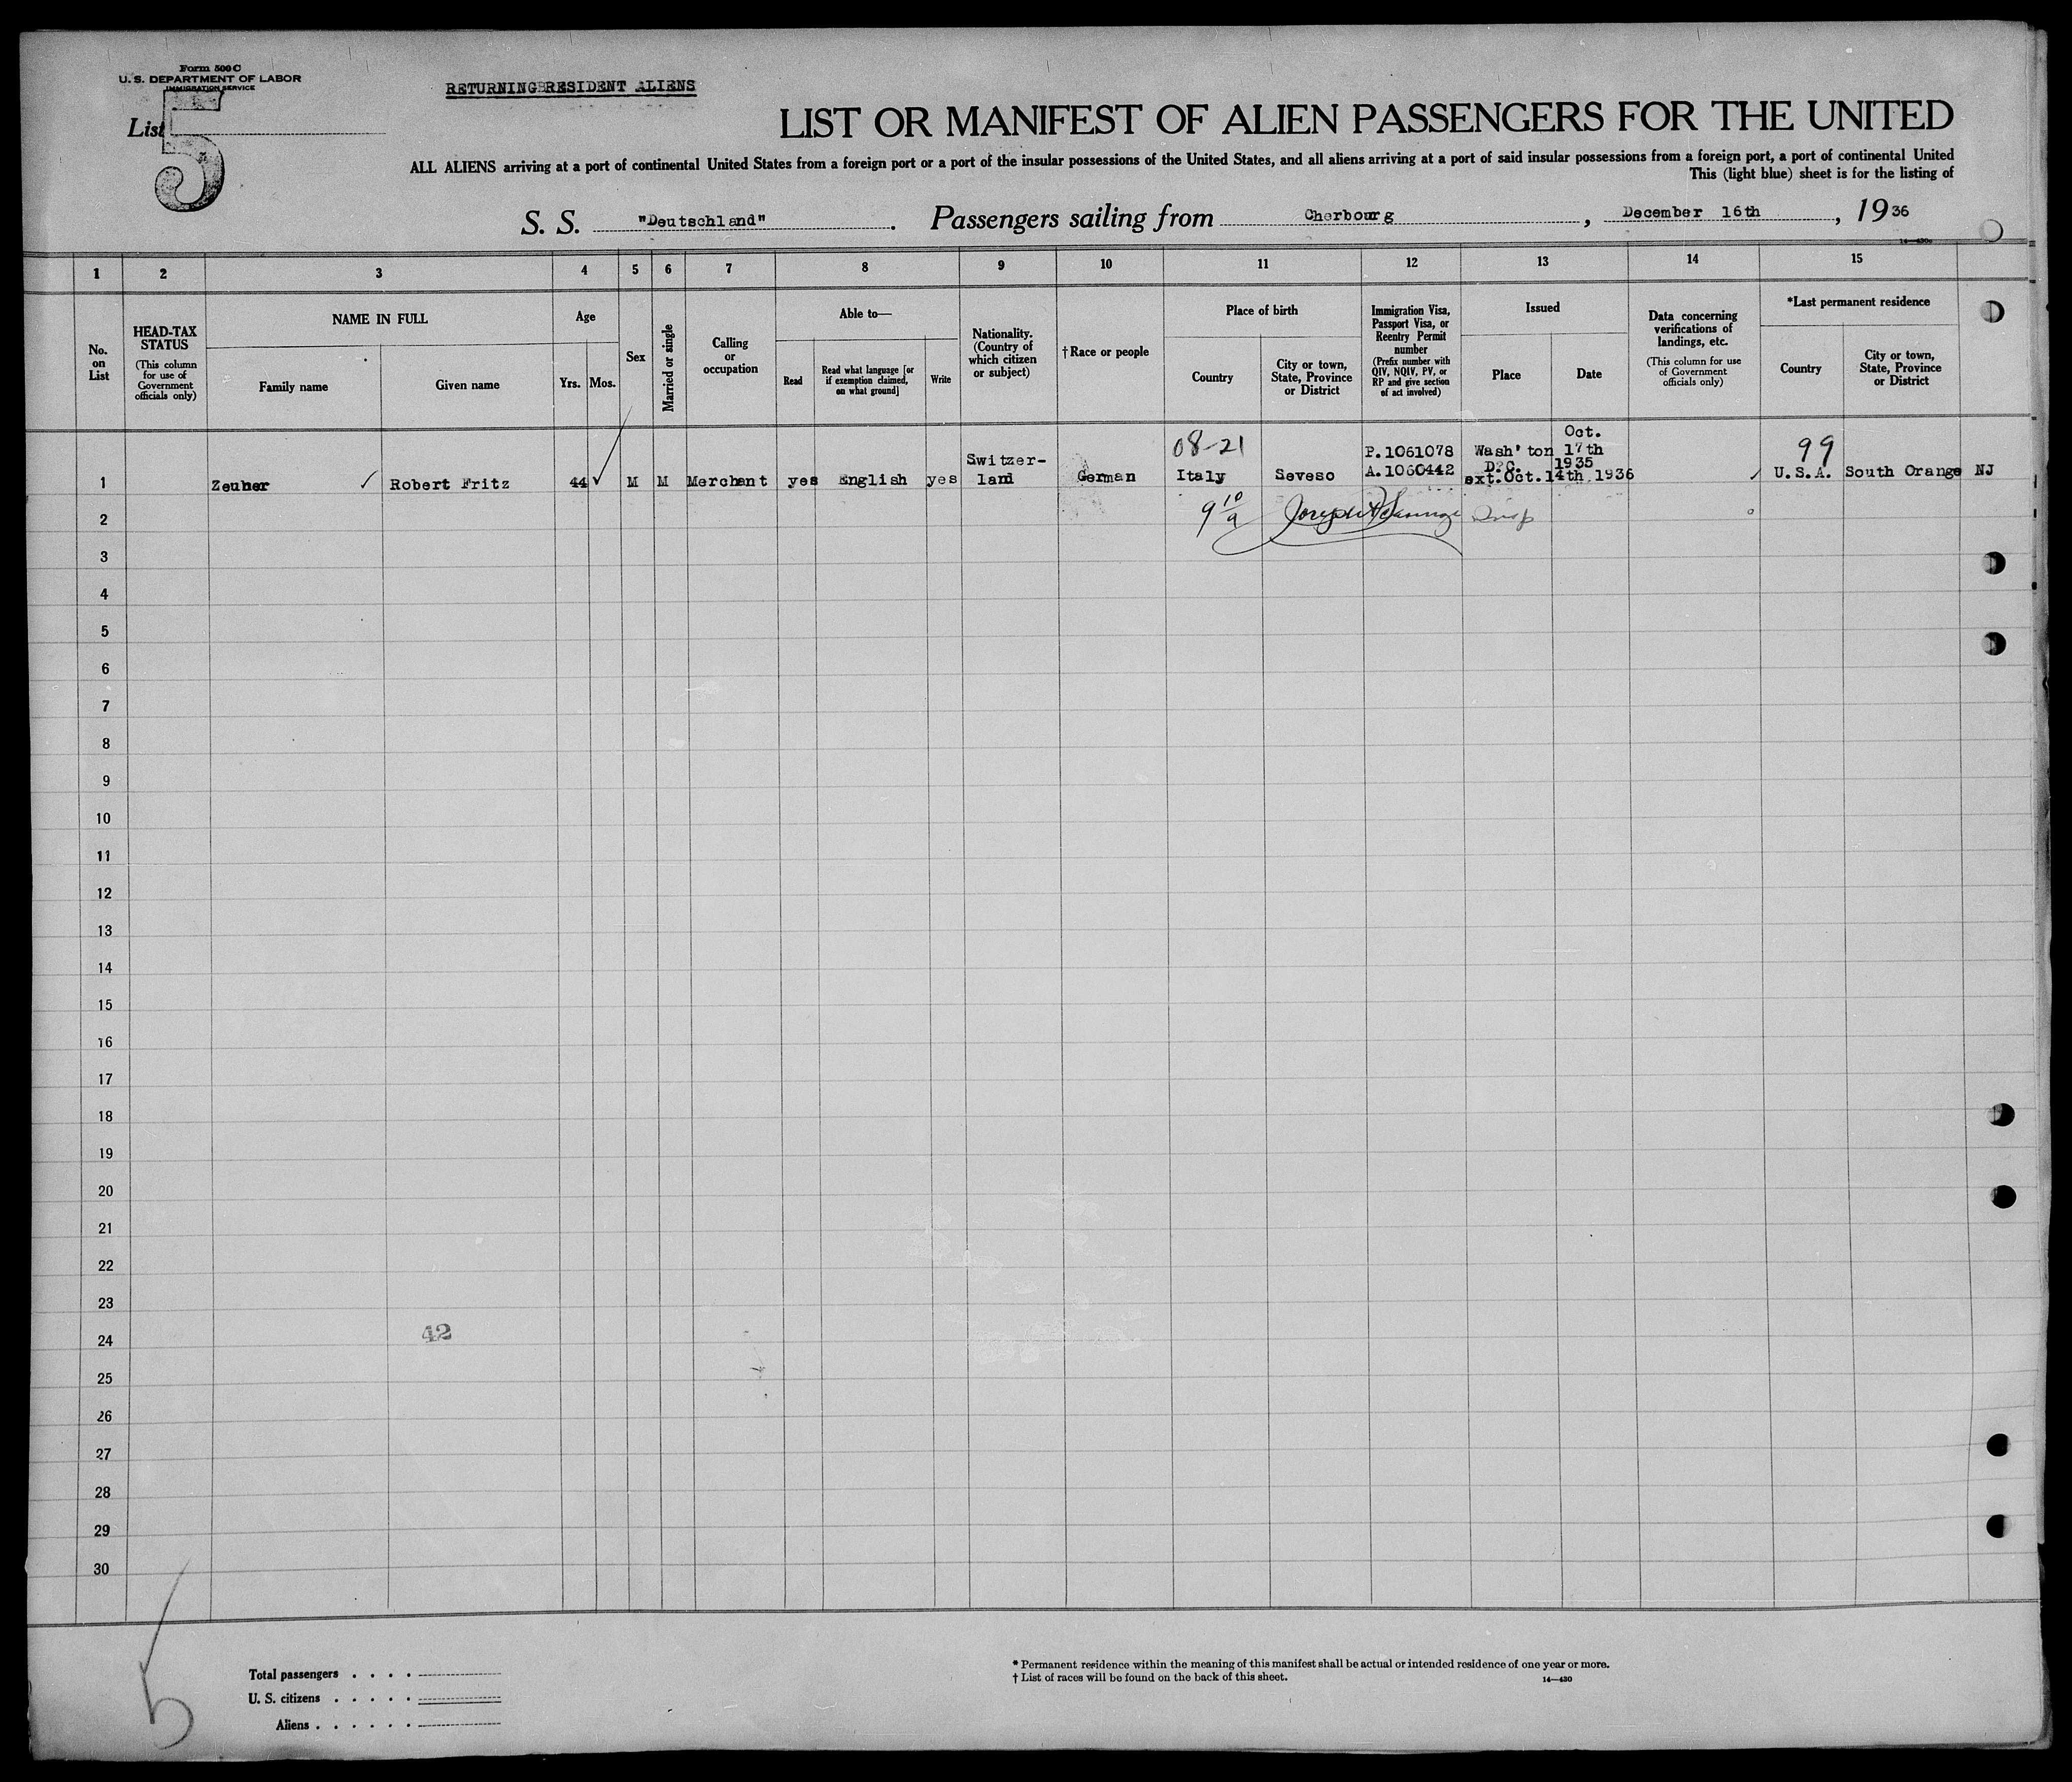 Form 500 C
U. S. DEPARTMENT OF LABOR
IMMIGRATION SERVICE
List 5
RETURNING RESIDENT ALIENS
LIST OR MANIFEST OF ALIEN PASSENGERS FOR THE UNITED
ALL ALIENS arriving at a port of continental United States from a foreign port or a port of the insular possessions of the United States, and all aliens arriving at a port of said insular possessions from a foreign port, a port of continental United
This (light blue) sheet is for the listing of
S. S. "Deutschland". Passengers sailing from Cherbourg, December 16th, 1936
14—430
1 2 3 4 5 6 7 8 9 10 11 12 13 14 15
No. on List
HEAD-TAX STATUS
(This column for use of Government officials only)
NAME IN FULL
Family name
Given name
Age
Yrs.
Mos.
Sex
Married or single
Calling or occupation
Able to—
Read
Read what language [or if exemption claimed, on what ground]
Write
Nationality. (Country of which citizen or subject)
† Race or people
Place of birth
Country
City or town, State, Province or District
Immigration Visa, Passport Visa, or Reentry Permit number
(Prefix number with QIV, NQIV, PV, or RP and give section of act involved)
Issued
Place
Date
Data concerning verifications of landings, etc.
(This column for use of Government officials only)
*Last permanent residence
Country
City or town, State, Province or District
08-21
99
1 Zeuner ✓ Robert Fritz 44 ✓ M M Merchant yes English yes Switzer-land German Italy Seveso P.1061078 A.1060442 Wash'ton D.C. Oct. 17th 1935 ext.Oct.14th.1936 ✓ U.S.A. South Orange NJ
2 9 10/9 Insp
3
4
5
6
7
8
9
10
11
12
13
14
15
16
17
18
19
20
21
22
23
24 42
25
26
27
28
29
30
5
Total passengers . . . .
U. S. citizens . . . . .
Aliens . . . . . .
* Permanent residence within the meaning of this manifest shall be actual or intended residence of one year or more.
† List of races will be found on the back of this sheet.
14—430